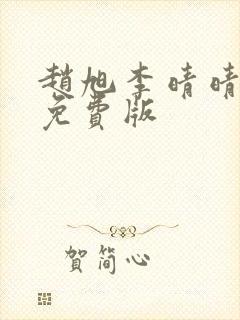 趙旭李晴晴
免費版
賀简心